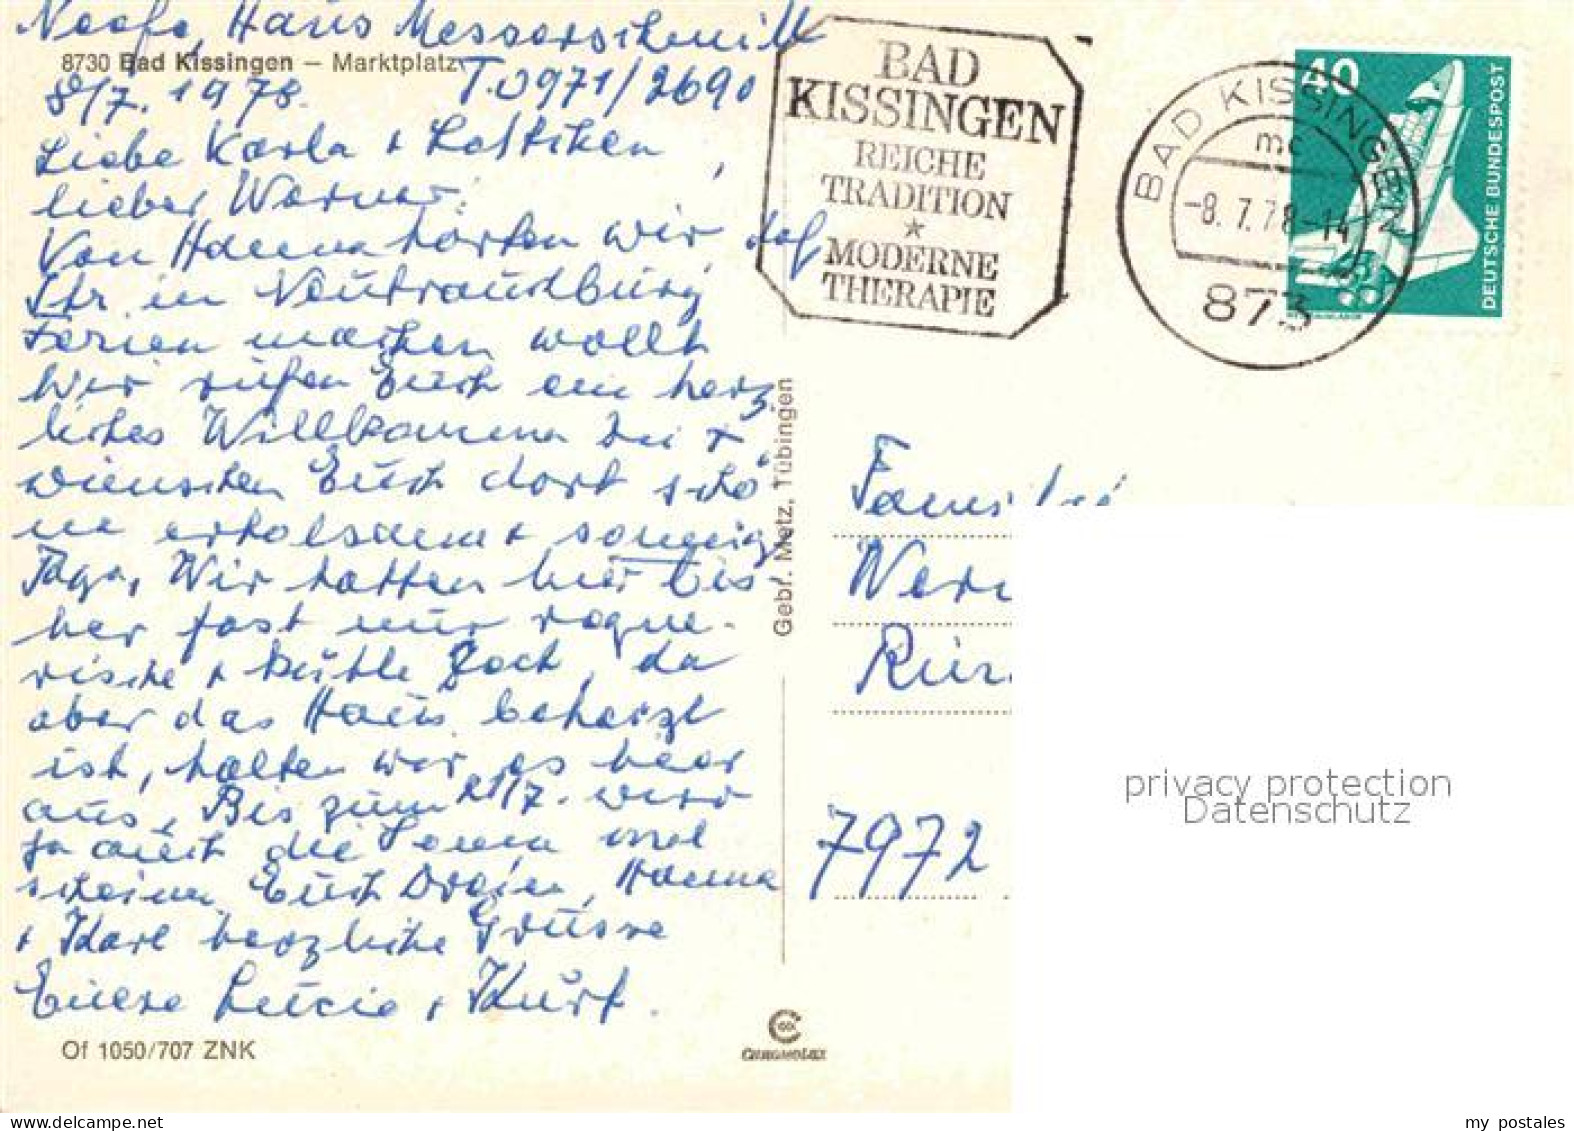 Haus Messerschmitt
8730 Bad Kissingen – Marktplatz
T. 0971/2690
8/7. 1978.
Liebe Karla +
lieber Werner!
Von Hanna hörten wir, daß
Ihr in Neutrauchburg
Ferien machen wollt
Wir rufen Euch ein herz
liches Willkommen zu +
wünschen Euch dort schö
ne erholsame + sonnige
Tage. Wir hatten hier bis
her fast nur regne-
rische + kühle Zeit, da
aber das Haus beheizt
ist, halten wir es hier
aus. Bis zum 21/7. wird
ja auch die Sonne mal
scheinen. Euch Dreien, Hanna
+ Karl herzliche Grüsse
Eure Lucie + Kurt.
Of 1050/707 ZNK
Gebr. Metz, Tübingen
BAD
KISSINGEN
REICHE
TRADITION
*
MODERNE
THERAPIE
BAD KISSINGEN 2
mc
-8.7.78-14
873
40
DEUTSCHE BUNDESPOST
Familie
Wern
7972
CHROMOLUX
privacy protection
Datenschutz
www.delcampe.net
my_postales